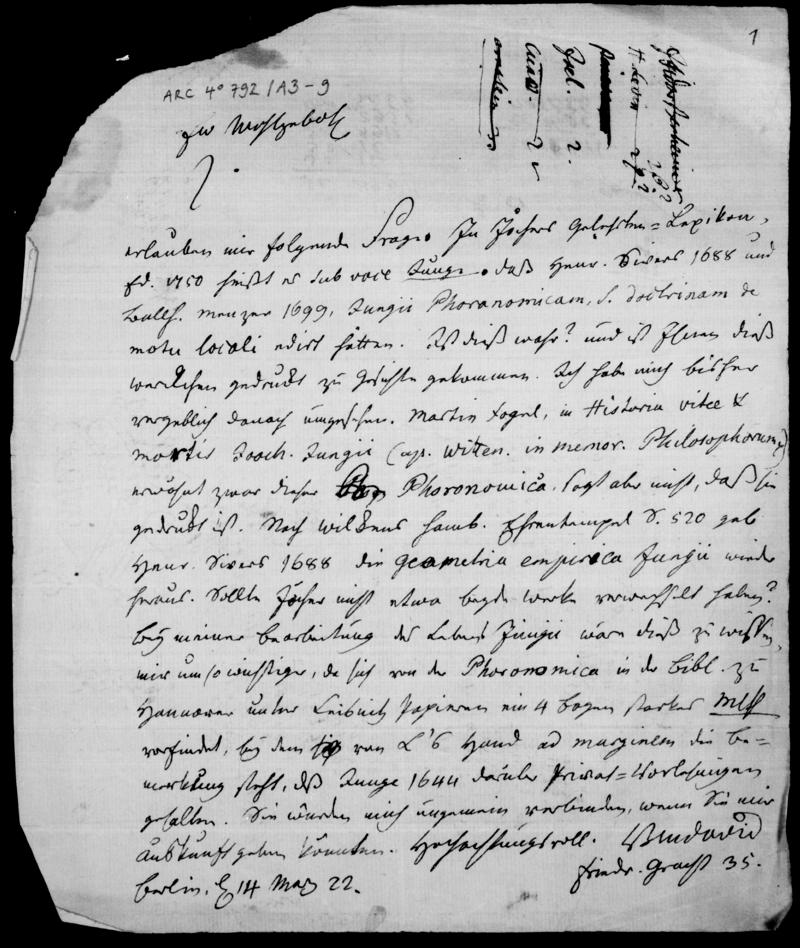 1
ARC 4° 792 / A3-9
Ew Wohlgebohr
erlauben mir folgende Frage. In Jöchers Gelehrten=Lexikon,
Ed. 1750 heißt es sub voce Junge. daß Henr. Sivers 1688 und
Balth. Menzer 1699, Jungii Phoranomicam, s. doctrinam de
motu locali edirt hätten. Ist dieß wahr? und ist Ihnen dieß
Werkchen gedruckt zu Gesichte gekommen. Ich habe mich bisher
vergeblich danach umgesehen. Martin Fogel, in Historia vitae &
mortis Joach. Jungii (ap. Witten. in memor. Philosophorum)
erwähnt zwar dieser Phoronomica. sagt aber nicht, daß sie
gedruckt ist. Nach Wilkens hamb. Ehrentempel S. 520 gab
Henr. Sivers 1688 die Geometria empirica Jungii wieder
heraus. Sollte Jöcher nicht etwa beyde Werke verwechselt haben?
Bey meiner Bearbeitung des Lebens Jungii wäre dieß zu wissen,
mir um so wichtiger, da sich von der Phoronomica in der Bibl. zu
Hannover unter Leibnitz Papieren ein 4 Bogen starkes Mss
vorfindet, bey dem von L's Hand ad marginem die Be=
merkung steht, daß Junge 1644 darüber Privat=Vorlesungen
gehalten. Sie würden mich ungemein verbinden, wenn Sie mir
Auskunft geben könnten. Hochachtungsvoll. Bendavid
Berlin, d 14 May 22.
Friedr. Gracht 35.